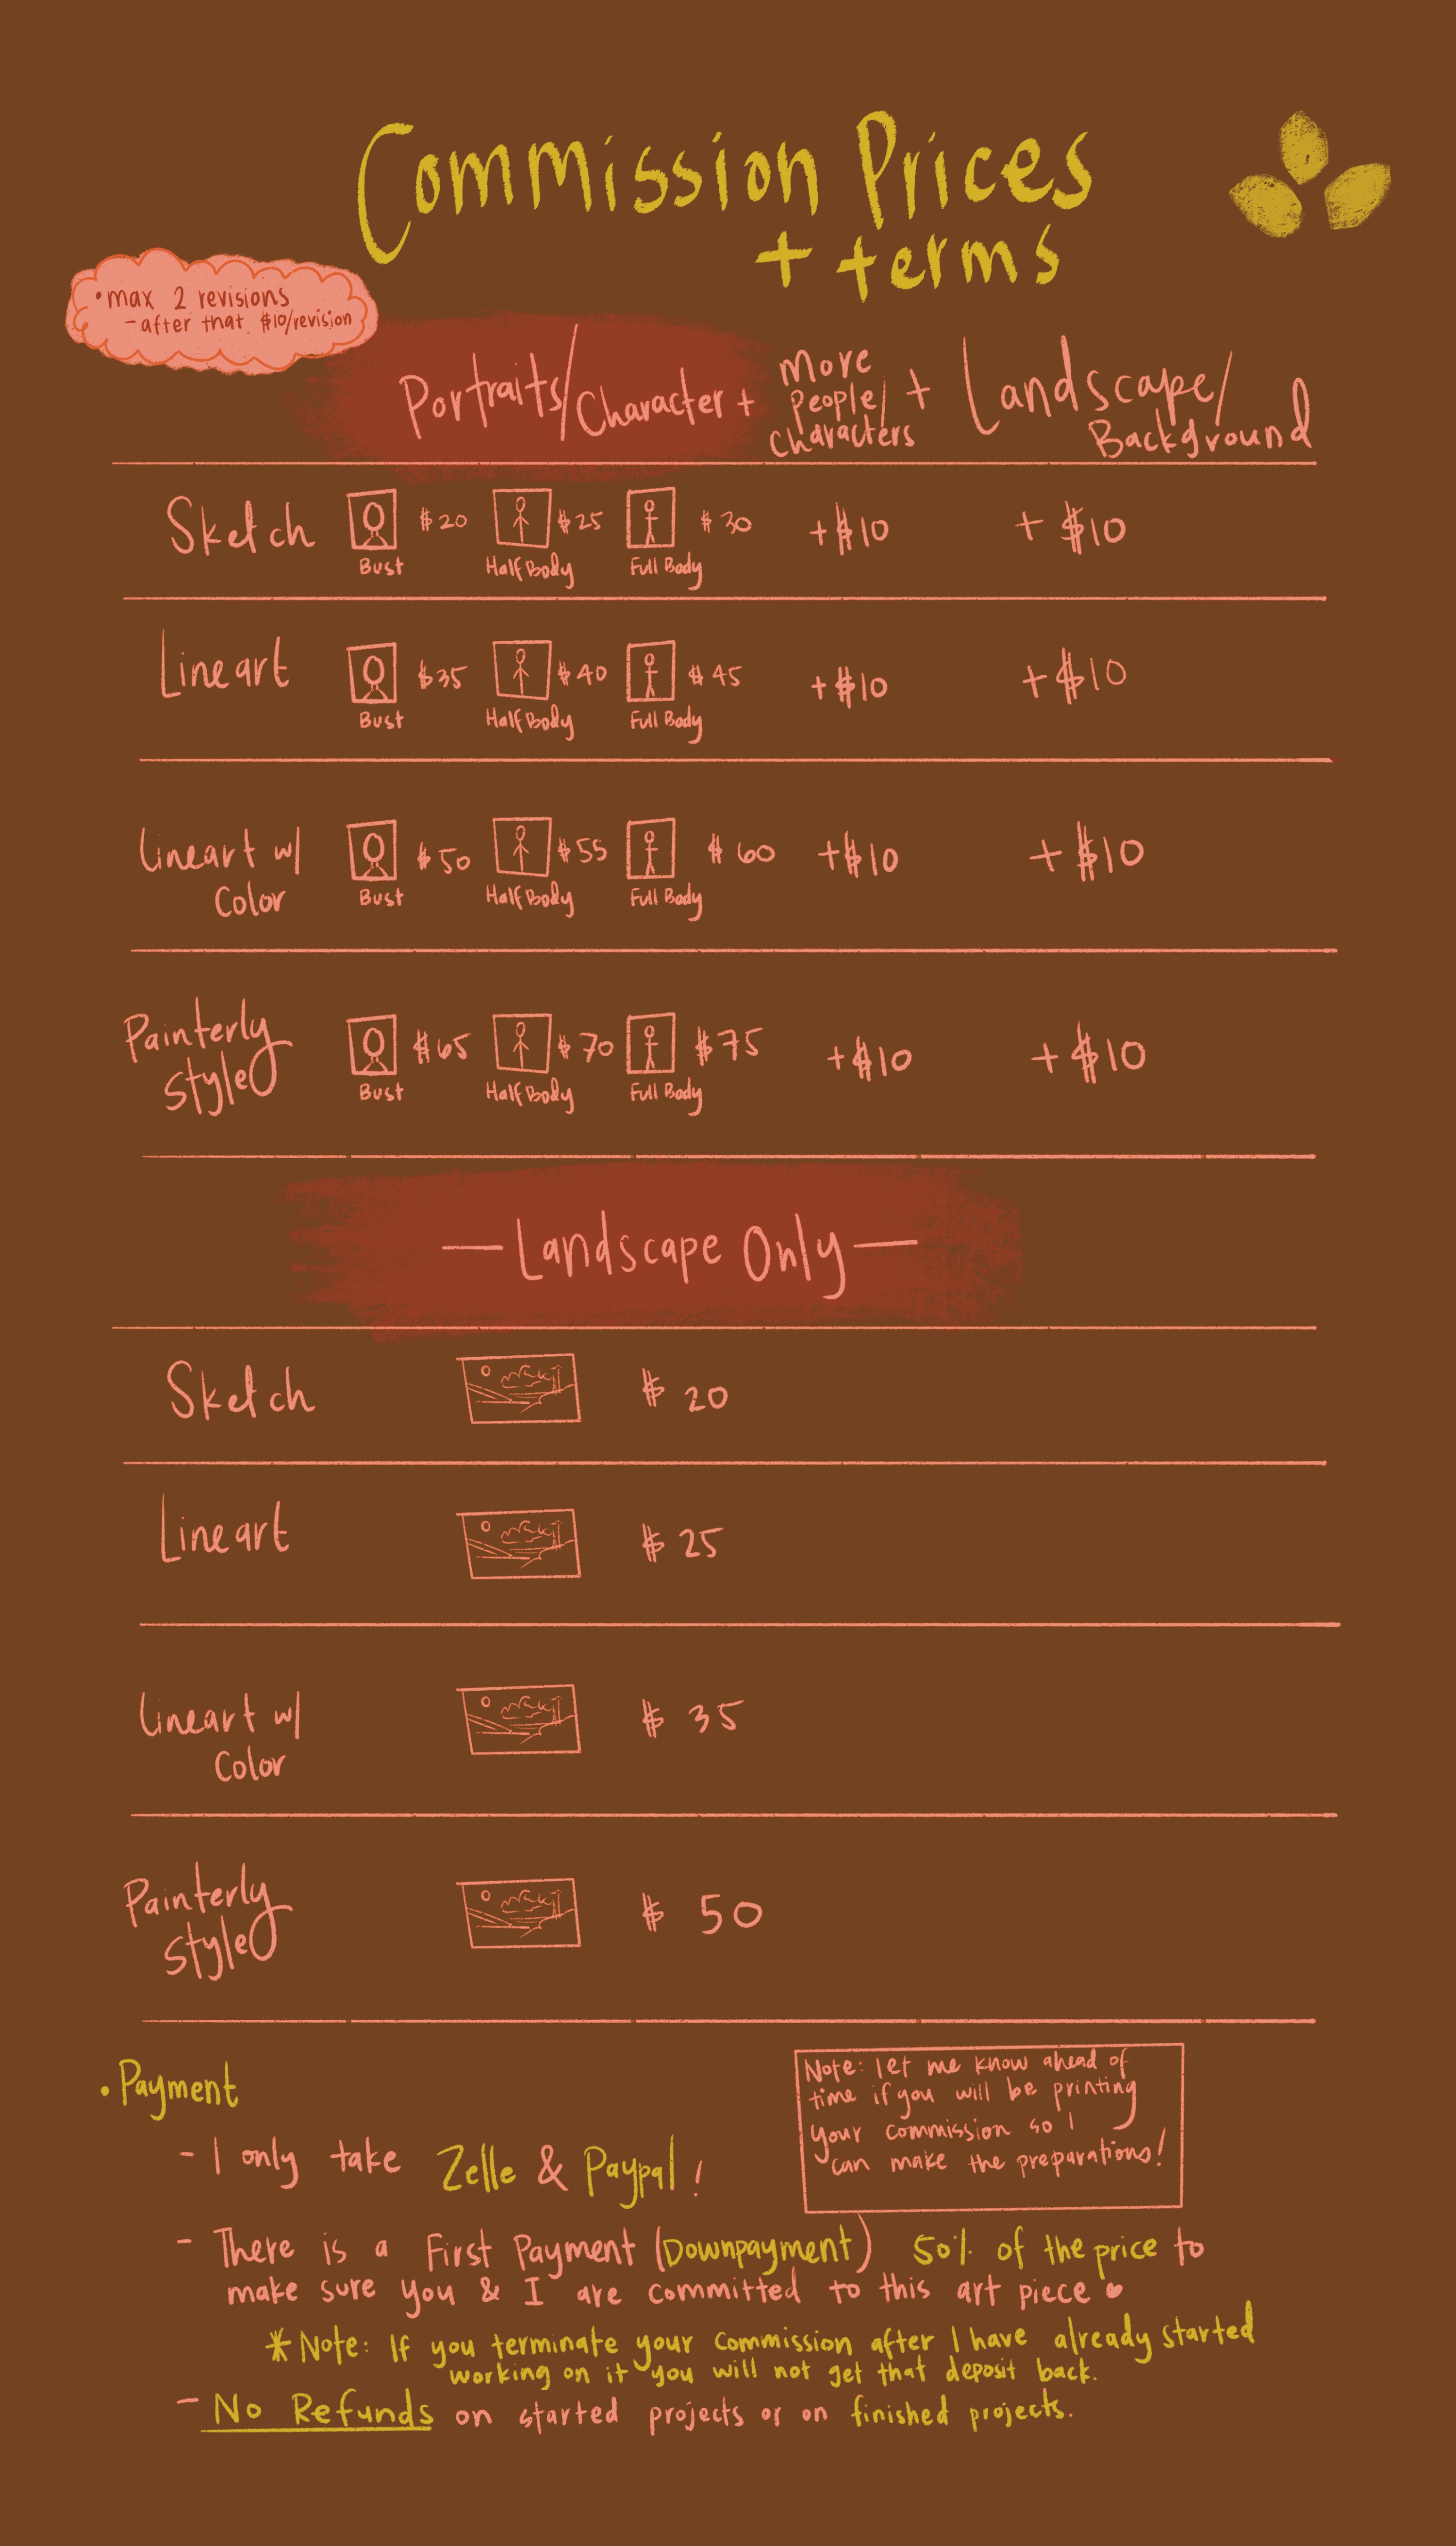 Commission Prices
+ terms
• max 2 revisions
- after that $10/revision
Portraits/Character + More People/Characters + Landscape/Background
Sketch $20 $25 $30 +$10 + $10
Bust Half Body Full Body
Lineart $35 $40 $45 +$10 +$10
Bust Half Body Full Body
Lineart w/ $50 $55 $60 +$10 + $10
Color Bust Half Body Full Body
Painterly $65 $70 $75 +$10 + $10
style Bust Half Body Full Body
— Landscape Only —
Sketch $20
Lineart $25
Lineart w/ $35
Color
Painterly $50
style
• Payment
Note: let me know ahead of
time if you will be printing
your commission so I
can make the preparations!
- I only take Zelle & Paypal!
- There is a First Payment (Downpayment) 50% of the price to
make sure you & I are committed to this art piece
* Note: If you terminate your commission after I have already started
working on it you will not get that deposit back.
- No Refunds on started projects or on finished projects.